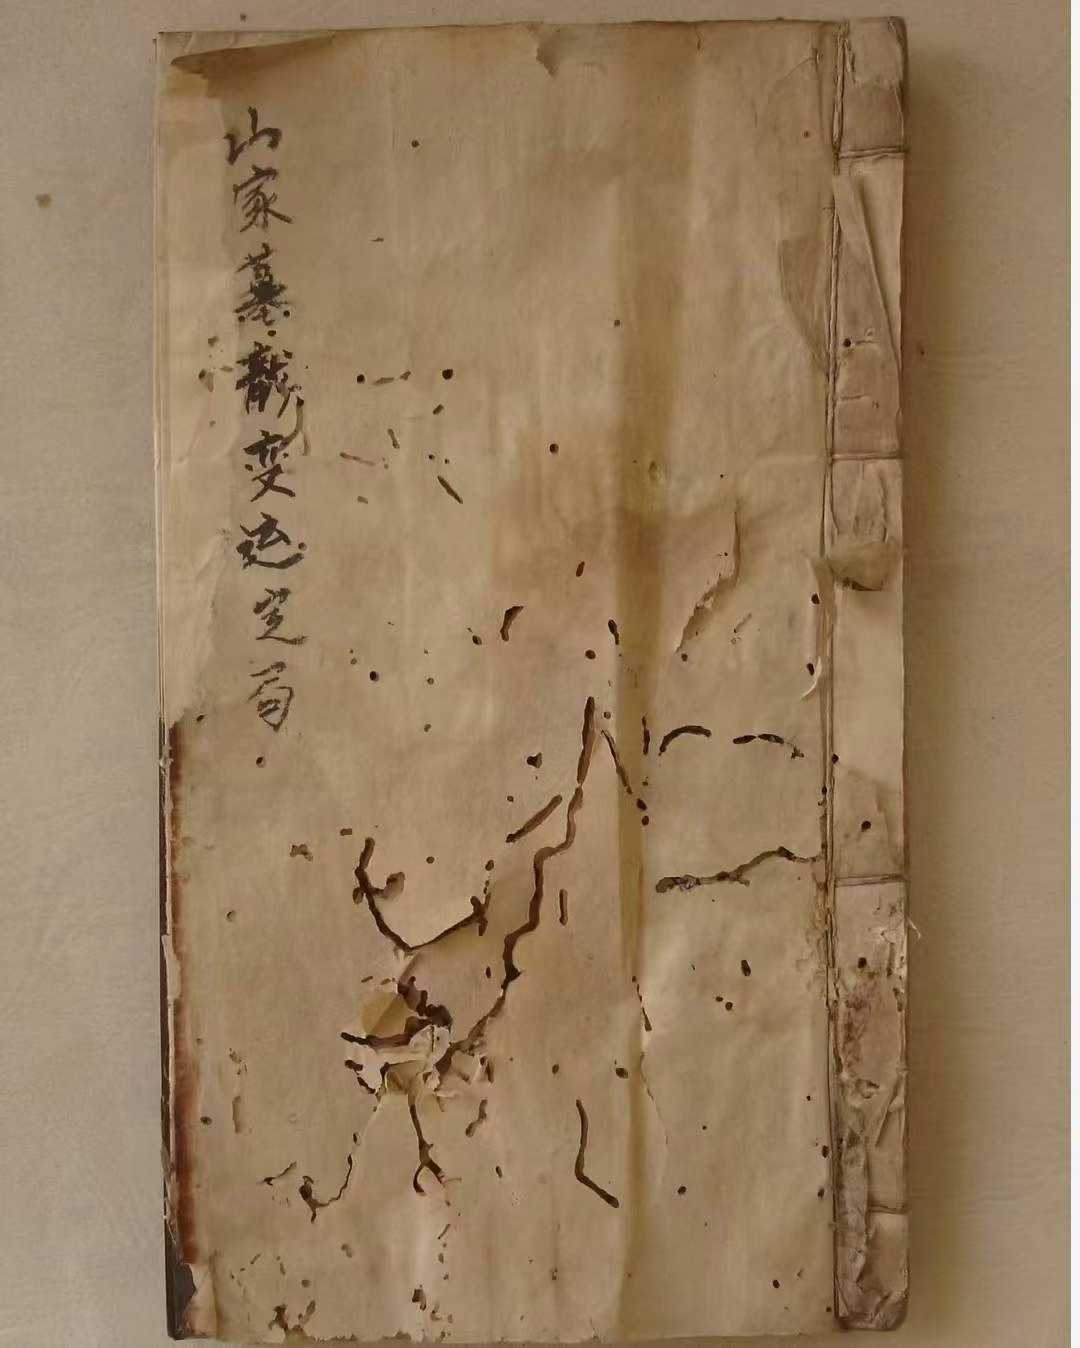 山家墓龍变运定局